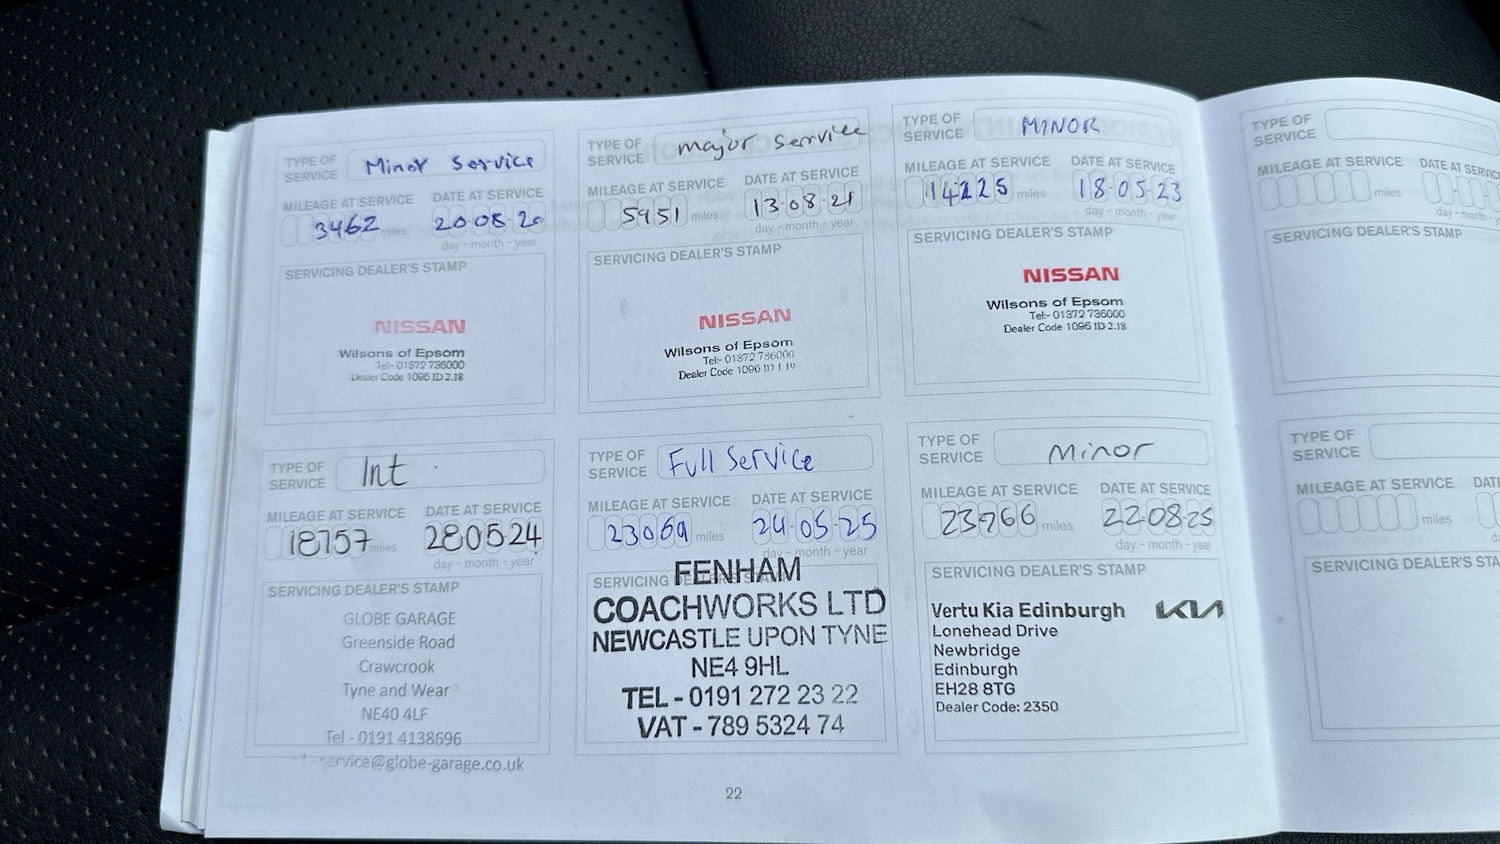 TYPE OF SERVICE Minor Service
MILEAGE AT SERVICE DATE AT SERVICE
3462 miles 20-08-20
day - month - year
SERVICING DEALER'S STAMP
NISSAN
Wilsons of Epsom
Tel:- 01372 736000
Dealer Code 1096 ID 2.18
TYPE OF SERVICE major service
MILEAGE AT SERVICE DATE AT SERVICE
5951 miles 13-08-21
day - month - year
SERVICING DEALER'S STAMP
NISSAN
Wilsons of Epsom
Tel:- 01372 736000
Dealer Code 1096
TYPE OF SERVICE MINOR
MILEAGE AT SERVICE DATE AT SERVICE
14225 miles 18-05-23
day - month - year
SERVICING DEALER'S STAMP
NISSAN
Wilsons of Epsom
Tel:- 01372 736000
Dealer Code 1096 ID 2.18
TYPE OF SERVICE Int
MILEAGE AT SERVICE DATE AT SERVICE
18757 miles 280524
day - month - year
SERVICING DEALER'S STAMP
GLOBE GARAGE
Greenside Road
Crawcrook
Tyne and Wear
NE40 4LF
Tel - 0191 4138696
service@globe-garage.co.uk
TYPE OF SERVICE Full Service
MILEAGE AT SERVICE DATE AT SERVICE
23069 miles 24-05-25
day - month - year
SERVICING DEALER'S STAMP
FENHAM
COACHWORKS LTD
NEWCASTLE UPON TYNE
NE4 9HL
TEL - 0191 272 23 22
VAT - 789 5324 74
TYPE OF SERVICE Minor
MILEAGE AT SERVICE DATE AT SERVICE
23766 miles 22-08-25
day - month - year
SERVICING DEALER'S STAMP
Vertu Kia Edinburgh KIA
Lonehead Drive
Newbridge
Edinburgh
EH28 8TG
Dealer Code: 2350
22
TYPE OF SERVICE
MILEAGE AT SERVICE DATE AT SERV
miles day - month - y
SERVICING DEALER'S STAMP
TYPE OF SERVICE
MILEAGE AT SERVICE DAT
miles
SERVICING DEALER'S STA